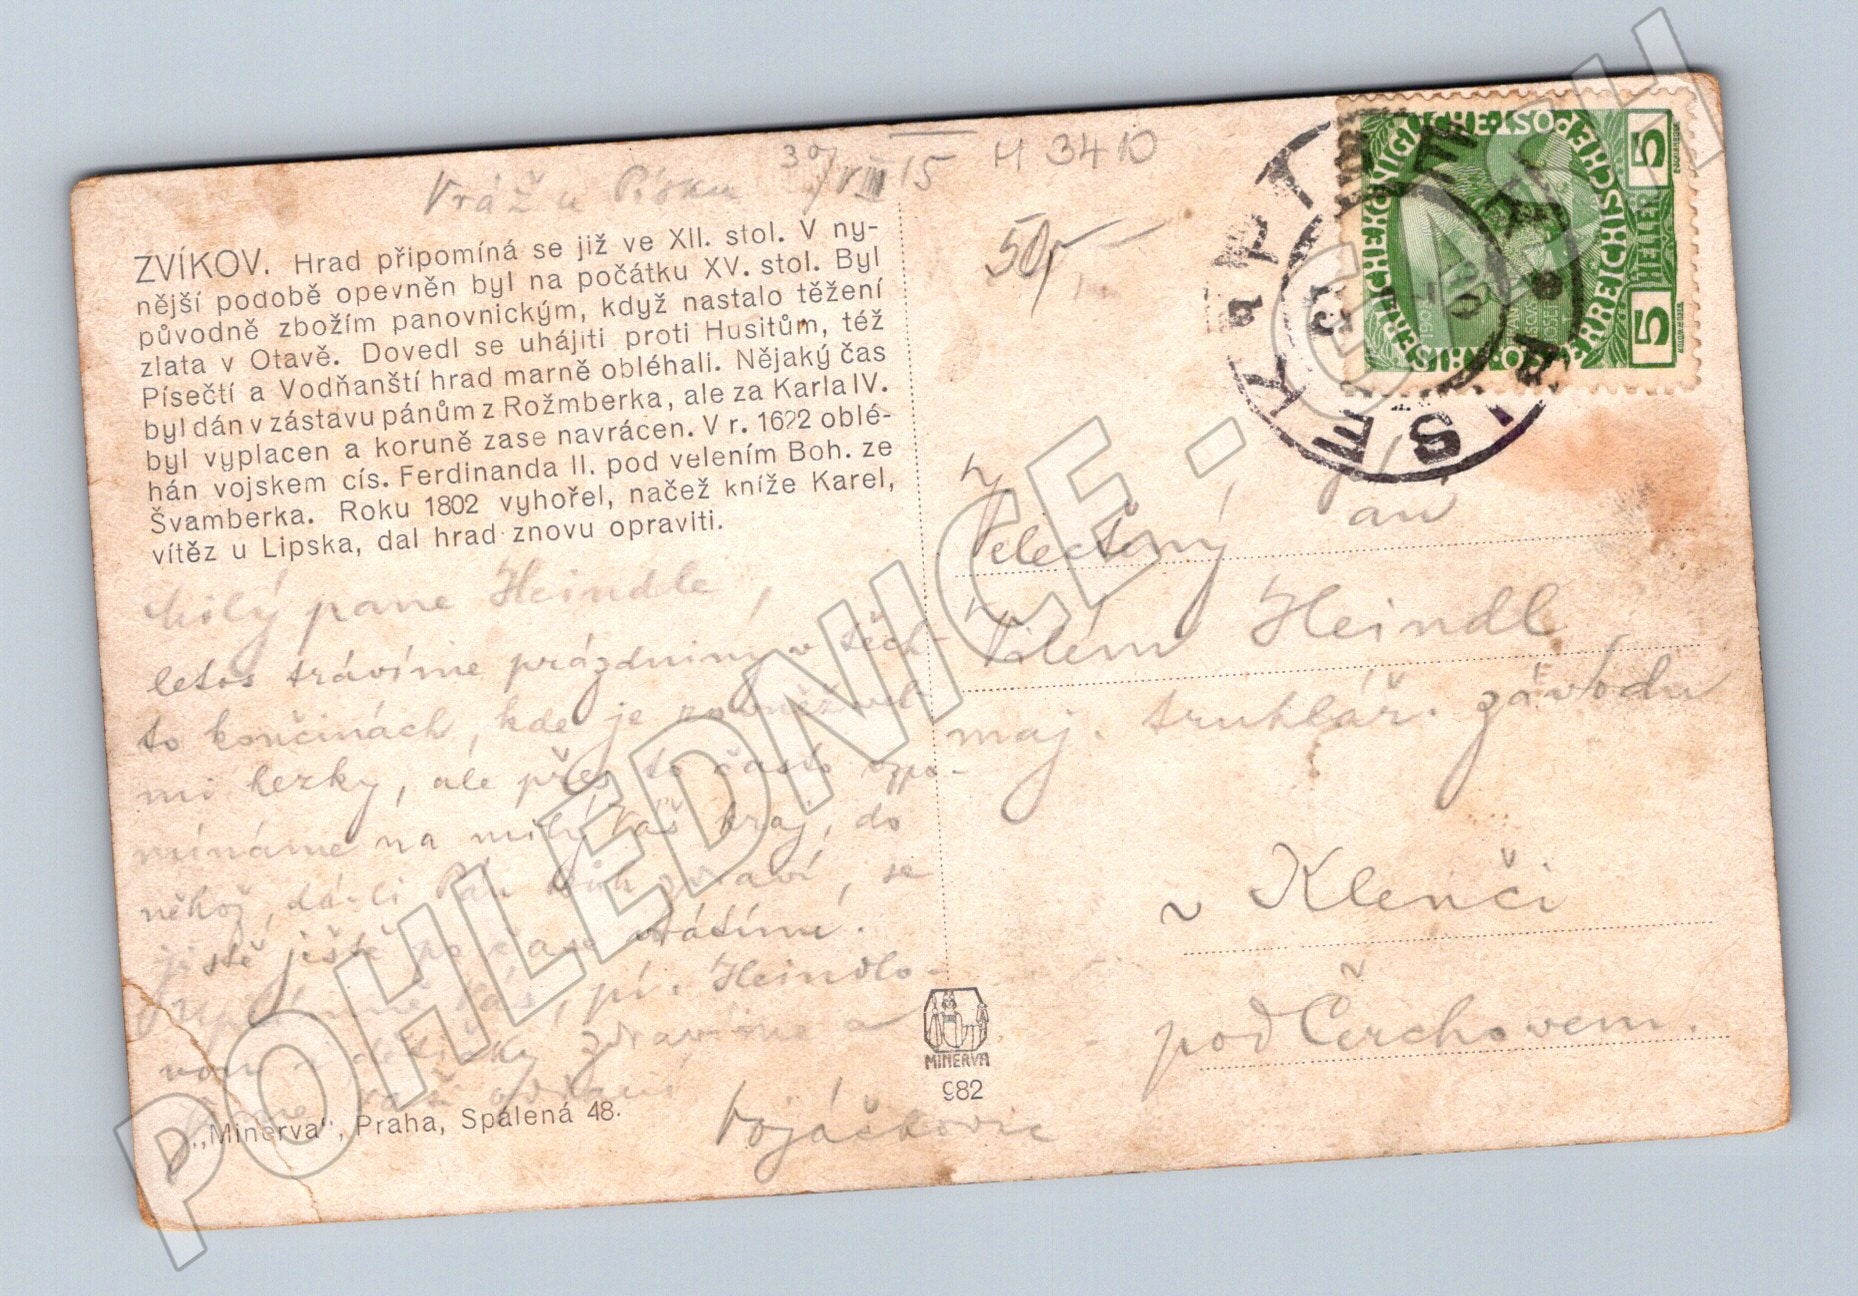 Vráž u Písku 30/VIII 15 H 3410
50,-
ZVÍKOV. Hrad připomíná se již ve XII. stol. V ny-
nější podobě opevněn byl na počátku XV. stol. Byl
původně zbožím panovnickým, když nastalo těžení
zlata v Otavě. Dovedl se uhájiti proti Husitům, též
Písečtí a Vodňanští hrad marně obléhali. Nějaký čas
byl dán v zástavu pánům z Rožmberka, ale za Karla IV.
byl vyplacen a koruně zase navrácen. V r. 1622 oblé-
hán vojskem cís. Ferdinanda II. pod velením Boh. ze
Švamberka. Roku 1802 vyhořel, načež kníže Karel,
vítěz u Lipska, dal hrad znovu opraviti.
Milý pane Heindle,
letos trávíme prázdniny v těch-
to končinách, kde je rovněž vel-
mi hezky, ale přes to často vzpo-
mínáme na milý Váš kraj, do
něhož, dá-li Pán Bůh zdraví, se
jistě ještě po čase vrátíme.
Upřímně Vás, pí. Heindlo-
vou i dětičky zdravíme a
Vojáčkovic
„Minerva“, Praha, Spálená 48.
MINERVA
982
5 HELLER 5
Velectěný pan
Vilém Heindl
maj. truhlář. závodu
v Klenčí
pod Čerchovem.
POHLEDNICE - CASH